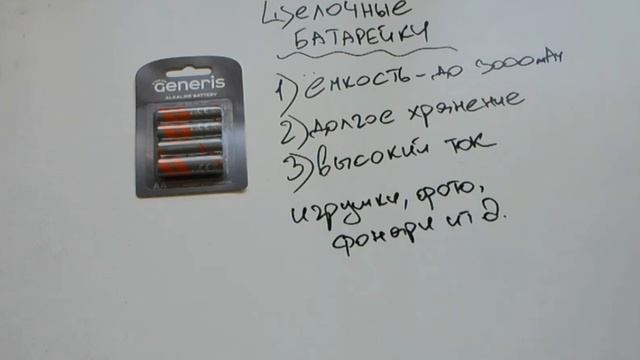 Щелочные
БАТАРЕЙКИ
1) ёмкость - до 3000 мАч
2) долгое хранение
3) высокий ток
игрушки, фото,
фонари и т д.
Generis
ALKALINE BATTERY
AA